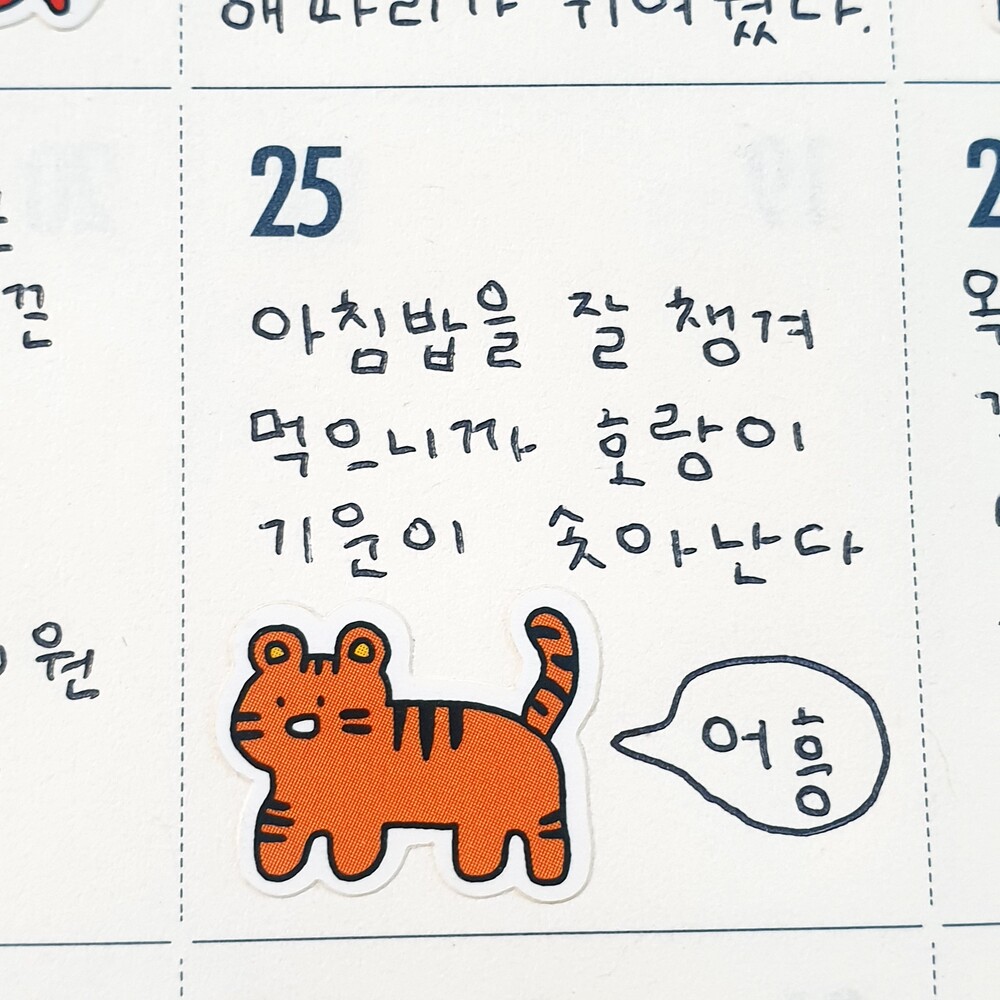 해파리가 귀여웠다.
25
아침밥을 잘 챙겨
먹으니까 호랑이
기운이 솟아난다
어흥
끈
원